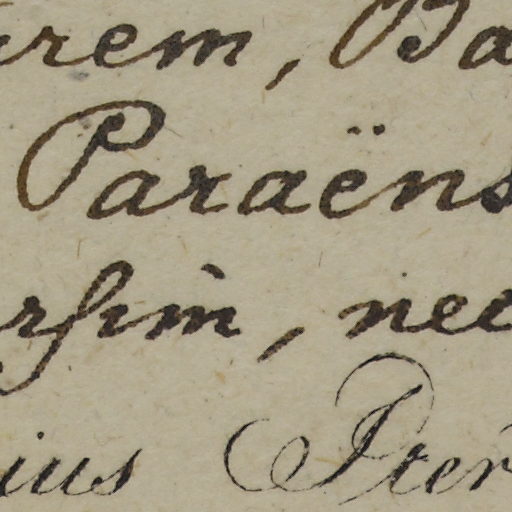 arem, Ba
Paraëns
rsim, nec
ius Pter